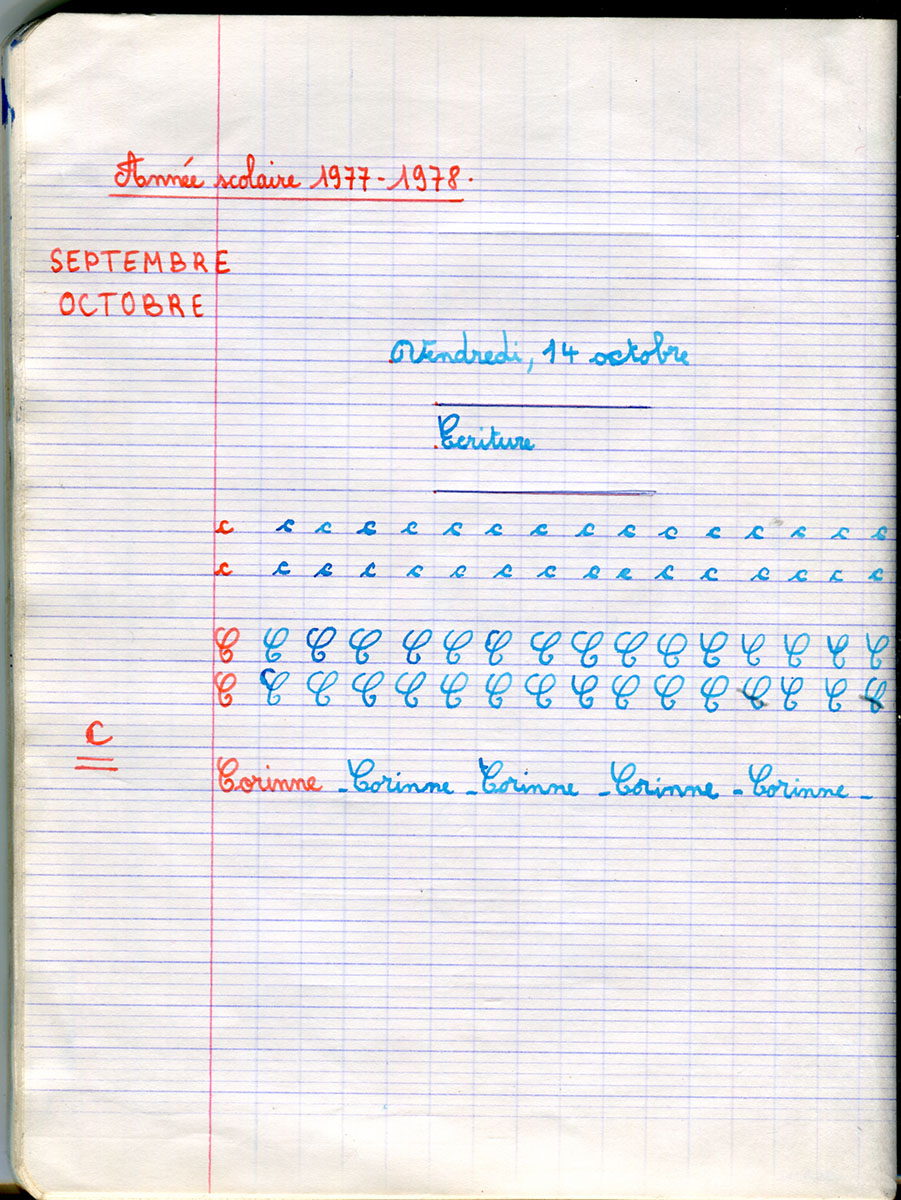 Année scolaire 1977-1978.
SEPTEMBRE
OCTOBRE
Vendredi, 14 octobre
Ecriture
c c c c c c c c c c c c c c c c
c c c c c c c c c c c c c c c c
C C C C C C C C C C C C C C C C
C C C C C C C C C C C C C C C C
C
Corinne - Corinne - Corinne - Corinne - Corinne -